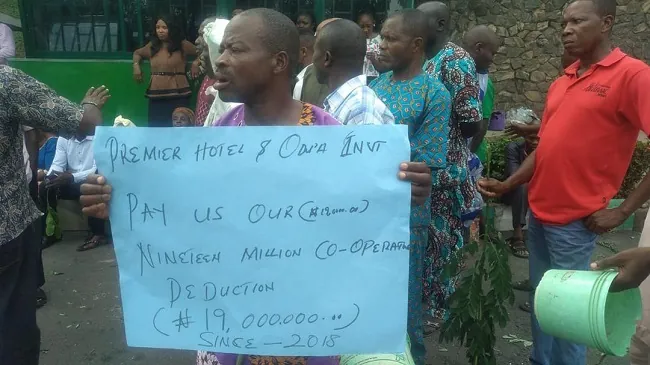 PREMIER HOTEL & ODU'A INVT
PAY US OUR (₦19,000,000.00)
NINETEEN MILLION CO-OPERATIVE
DEDUCTION
(₦19,000.000.00)
SINCE - 2018